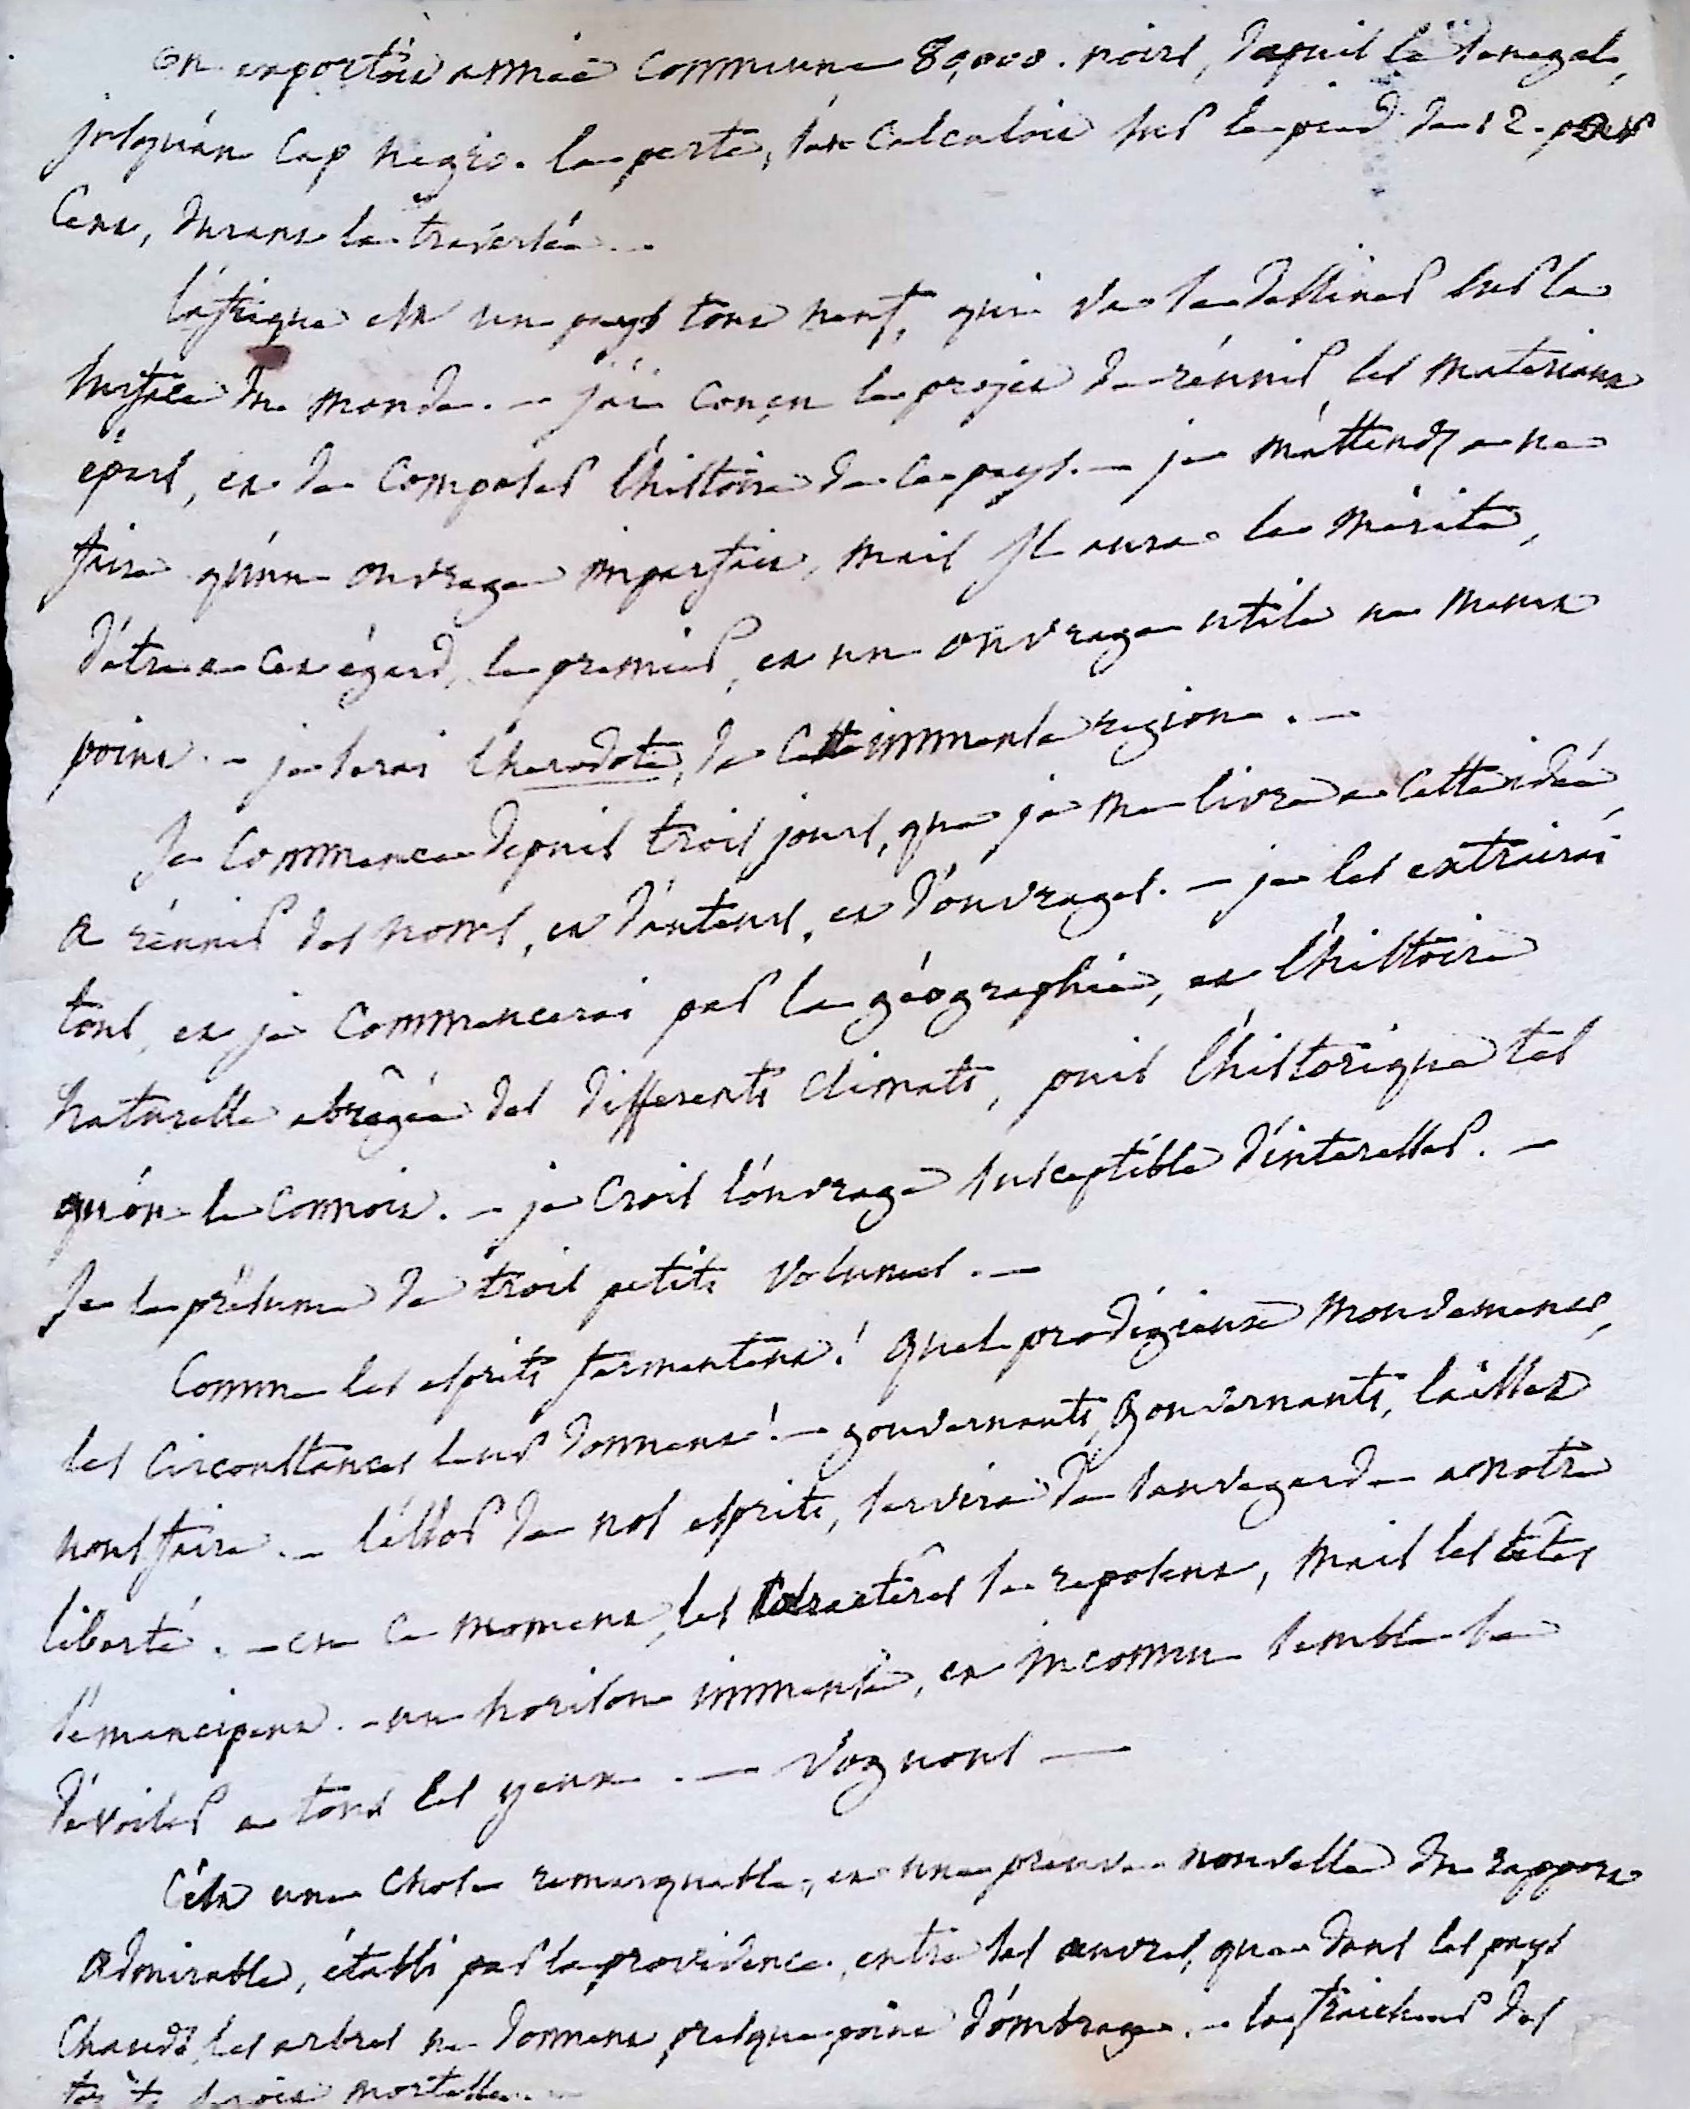 on exportoit année commune 80,000. noirs, depuis le Senegal,
jusqu'au Cap negro. la perte, s'en calculoit sur le pied de 12. pour
Cent, durant la traversée. –
l'afrique est un pays tout neuf, qui va se dessiner sur la
surface du monde. – j'ai conçu le projet de réunir les materiaux
épars, et de composer l'histoire de ce pays. – je m'attends a ne
faire qu'un ouvrage imparfait, mais il aura le mérite,
d'être a cet égard, le premier, et un ouvrage utile au meme
point. – je serai l'herodote, de cette immense region. –
Je commence depuis trois jours, que je me livre a cette idée,
a réunir des noms, et d'auteurs, et d'ouvrages. – je les extrairai
tous, et je commencerai par la géographie, et l'histoire
naturelle abregée des differents climats, puis l'historique tel
qu'on le connoit. – je crois l'ouvrage susceptible d'interesser. –
Je le présume de trois petits volumes. –
Comme les esprits fermentent! quel prodigieux mouvement,
les circonstances leur donnent! – gouvernants, gouvernants, laissez
nous faire. – l'essor de nos esprits, servira de sauvegarde a notre
liberté. – en ce moment, les caractères se reposent, mais les têtes
s'émancipent. – un horison immense, et inconnu semble se
dévoiler a tous les yeux. – voguons –
C'est une chose remarquable, et une preuve nouvelle du rapport
admirable, établi par la providence, entre ses œuvres, que dans les pays
chauds, les arbres ne donnent presque point d'ombrage. – la fraicheur des
seroit mortelle. –